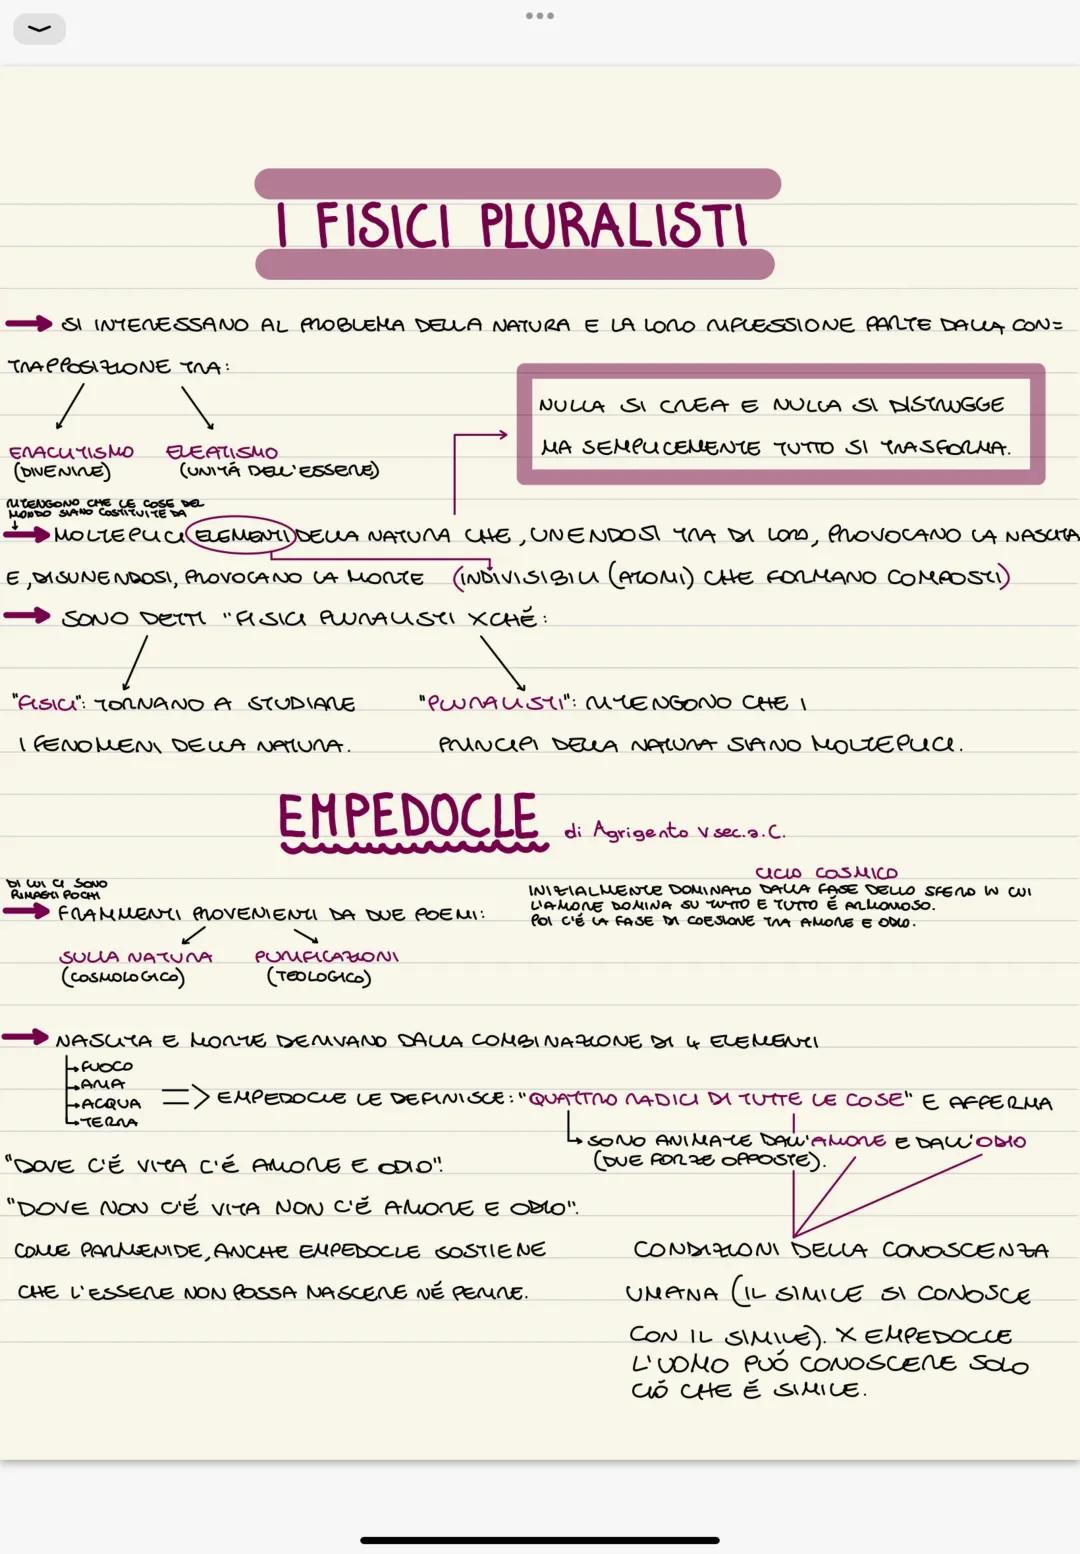 I FISICI PLURALISTI
SI INTERESSANO AL PROBLEMA DELLA NATURA E LA LORO RIFLESSIONE PARTE DALLA CON=
TRAPPOSIZIONE TRA:
ERACLITISMO
(DIVENIRE)
ELEATISMO
(UNITÁ DELL'ESSERE)
NULLA SI CREA E NULLA SI DISTRUGGE
MA SEMPLICEMENTE TUTTO SI TRASFORMA.
RITENGONO CHE LE COSE DEL
MONDO SIANO COSTITUITE DA
MOLTEPLICI ELEMENTI DELLA NATURA CHE, UNENDOSI TRA DI LORO, PROVOCANO LA NASCITA
E, DISUNENDOSI, PROVOCANO LA MORTE (INDIVISIBILI (ATOMI) CHE FORMANO COMPOSTI)
SONO DETTI "FISICI PLURALISTI XCHÉ:
"FISICI": TORNANO A STUDIARE
I FENOMENI DELLA NATURA.
"PLURALISTI": RITENGONO CHE I
PRINCIPI DELLA NATURA SIANO MOLTEPLICI.
EMPEDOCLE di Agrigento V sec.a.C.
DI LUI CI SONO
RIMASTI POCHI
FRAMMENTI PROVENIENTI DA DUE POEMI:
SULLA NATURA
(COSMOLOGICO)
PURIFICAZIONI
(TEOLOGICO)
CICLO COSMICO
INIZIALMENTE DOMINATO DALLA FASE DELLO SFERO IN CUI
L'AMORE DOMINA SU TUTTO E TUTTO É ARMONIOSO.
POI C'É LA FASE DI COESIONE TRA AMORE E ODIO.
NASCITA E MORTE DERIVANO DALLA COMBINAZIONE DI 4 ELEMENTI
FUOCO
ARIA
ACQUA
TERRA
=> EMPEDOCLE LE DEFINISCE: "QUATTRO RADICI DI TUTTE LE COSE" E AFFERMA
SONO ANIMATE DALL'AMORE E DALL'ODIO
(DUE FORZE OPPOSTE).
"DOVE C'É VITA C'É AMORE E ODIO".
"DOVE NON C'É VITA NON C'É AMORE E ODIO".
COME PARMENIDE, ANCHE EMPEDOCLE SOSTIENE
CHE L'ESSERE NON POSSA NASCERE NÉ PERIRE.
CONDIZIONI DELLA CONOSCENZA
UMANA (IL SIMILE SI CONOSCE
CON IL SIMILE). X EMPEDOCLE
L'UOMO PUÓ CONOSCERE SOLO
CIÓ CHE É SIMILE.